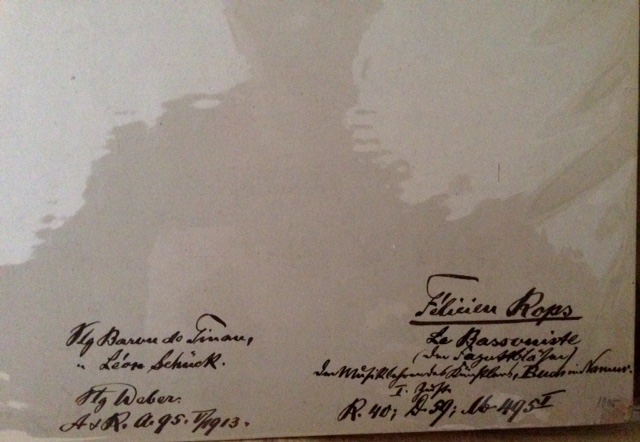 Slg Baron de Tinan,
" Léon Schück.
Slg Weber.
A & R. A. 95. V/1913.
Félicien Rops
Le Bassoniste
(Der Fagottbläser)
Der Musiklehrer des Künstlers, Buch in Namur.
I. Zust.
R. 40; D. 59; M. 495 I